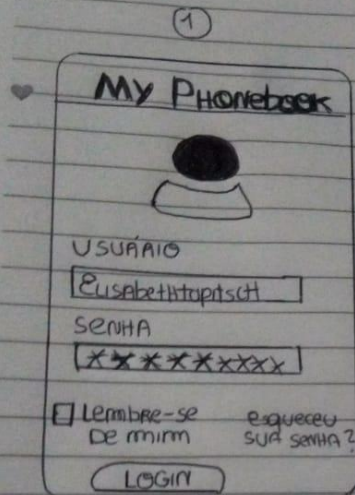 1
My Phonebook
USUÁRIO
Elisabethtapitsch
SENHA
**********
Lembre-se esqueceu
De mim sua senha?
LOGIN